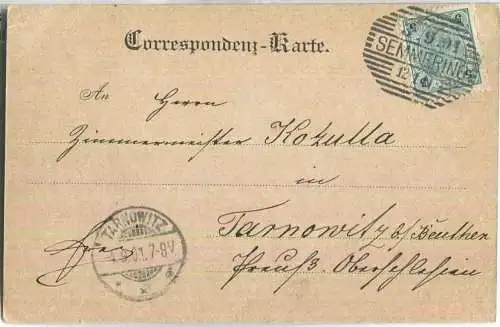 Correspondenz-Karte.
SEMMERING
An Herrn
Zimmermeister Kotzulla
in
Tarnowitz b/Beuthen
Preuß. Oberschlesien
TARNOWITZ
.01.7-8V